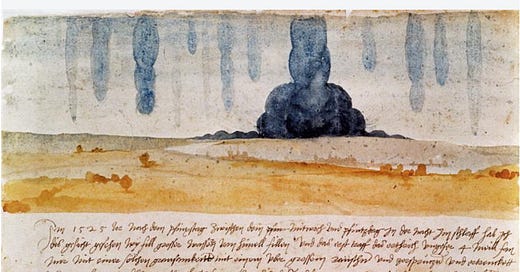 Im 1525 Jor nach dem pfinxstag zwischen dem mitwoch und pfintzdag in der nacht im schlaff hab ich
dis gesicht gesehen wy fill grosser wassern vom himell fillen Und das erst traff das erthrich ungefer 4 meill fan
mir mit einer solchen grausamkeitt mit einem uber grossem und